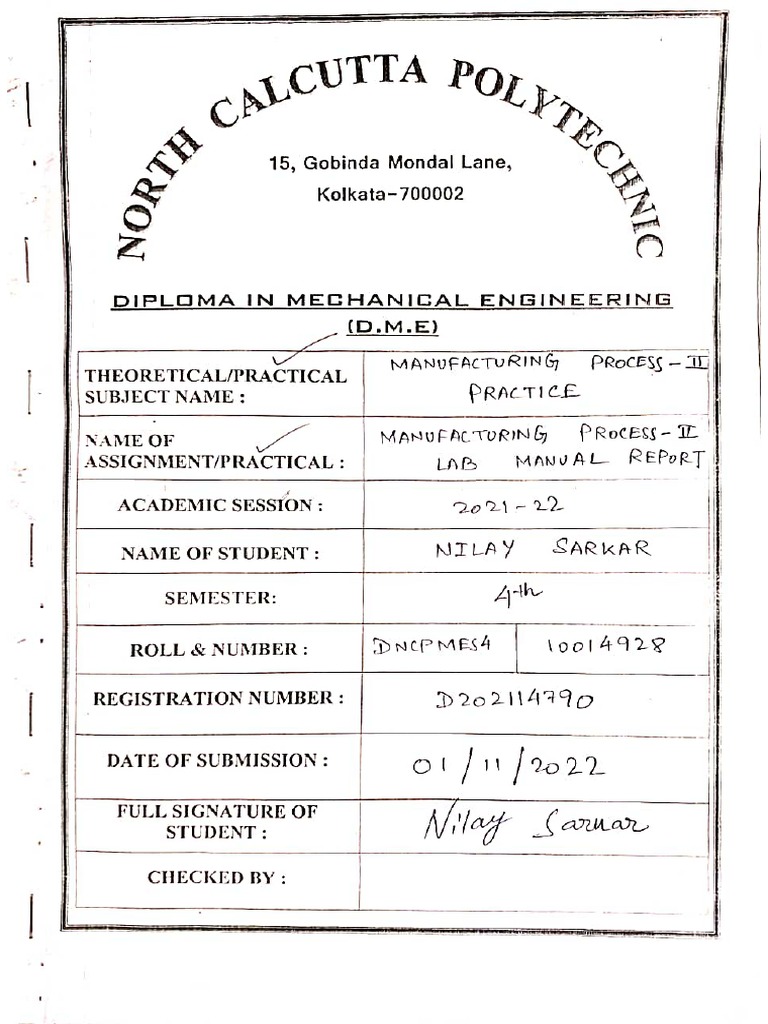 NORTH CALCUTTA POLYTECHNIC
15, Gobinda Mondal Lane,
Kolkata-700002
DIPLOMA IN MECHANICAL ENGINEERING
(D.M.E)
THEORETICAL/PRACTICAL
SUBJECT NAME :
MANUFACTURING PROCESS - II
PRACTICE
NAME OF
ASSIGNMENT/PRACTICAL :
MANUFACTURING PROCESS - II
LAB MANUAL REPORT
ACADEMIC SESSION : 2021-22
NAME OF STUDENT : NILAY SARKAR
SEMESTER: 4th
ROLL & NUMBER : DNCPMES4 10014928
REGISTRATION NUMBER : D202114790
DATE OF SUBMISSION : 01/11/2022
FULL SIGNATURE OF
STUDENT :
Nilay Sarkar
CHECKED BY :